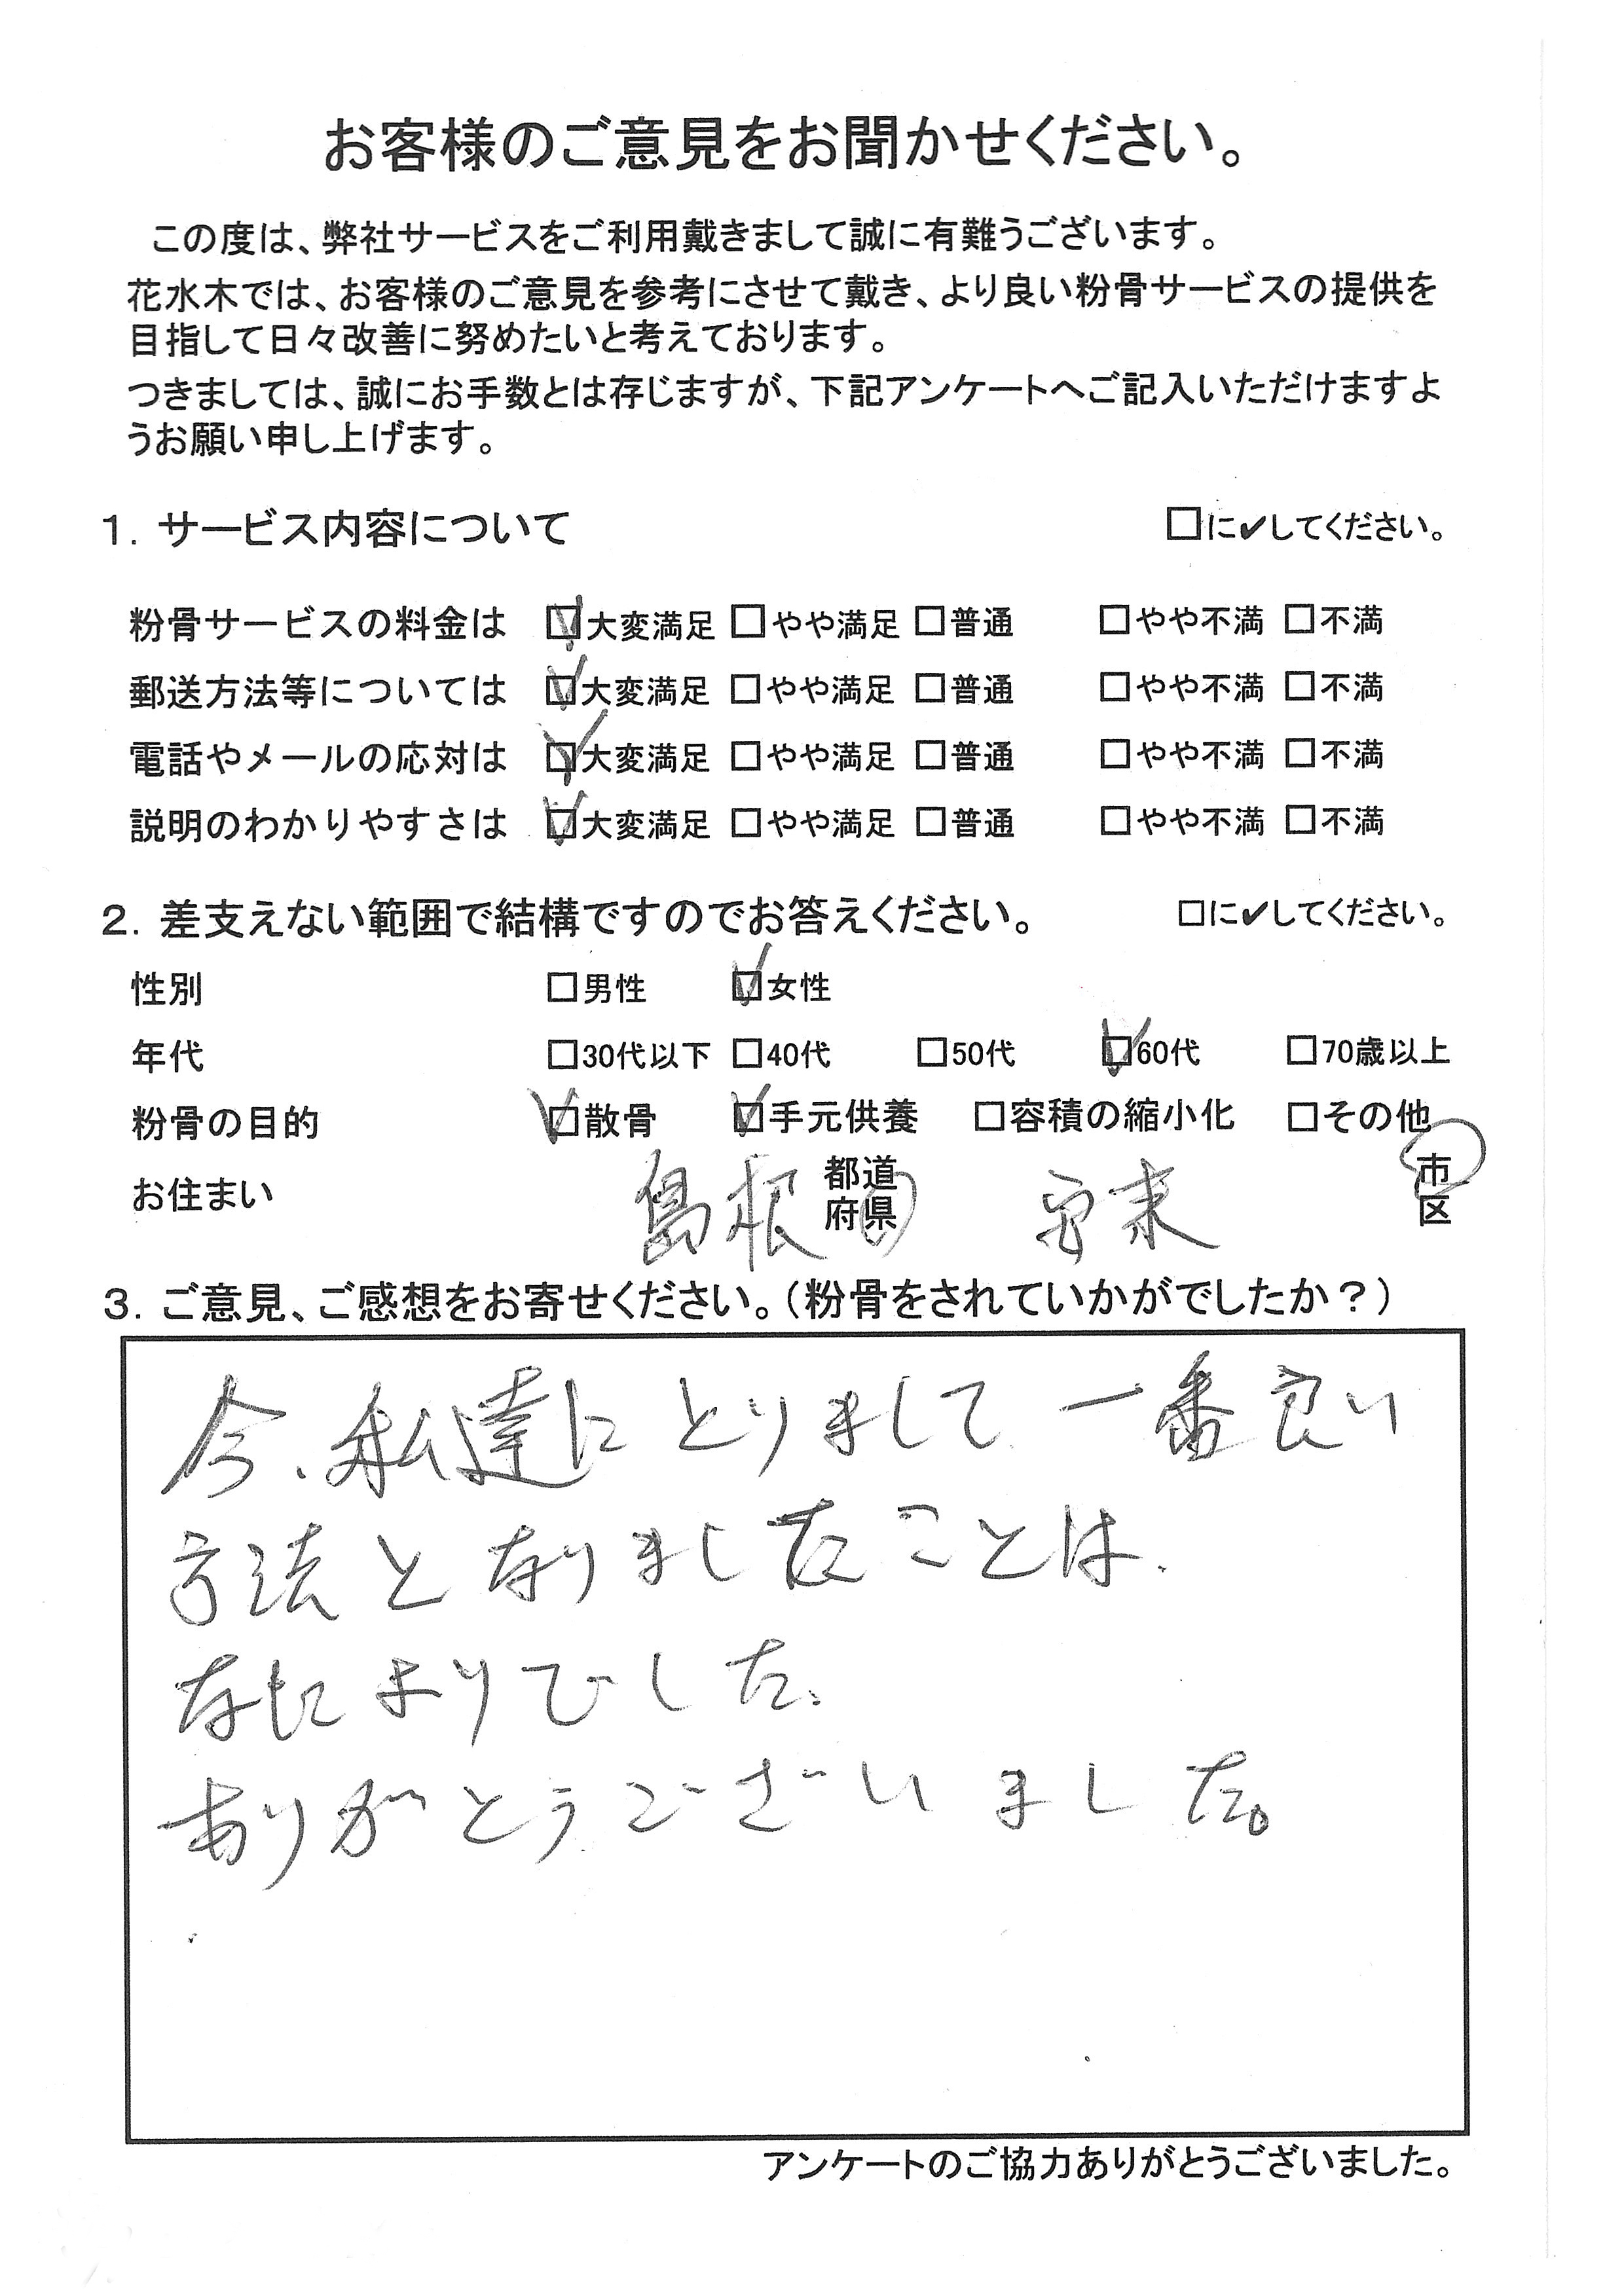 お客様のご意見をお聞かせください。
この度は、弊社サービスをご利用戴きまして誠に有難うございます。
花水木では、お客様のご意見を参考にさせて戴き、より良い粉骨サービスの提供を
目指して日々改善に努めたいと考えております。
つきましては、誠にお手数とは存じますが、下記アンケートへご記入いただけますよ
うお願い申し上げます。
1. サービス内容について □に✔してください。
粉骨サービスの料金は ☑大変満足 □やや満足 □普通 □やや不満 □不満
郵送方法等については ☑大変満足 □やや満足 □普通 □やや不満 □不満
電話やメールの応対は ☑大変満足 □やや満足 □普通 □やや不満 □不満
説明のわかりやすさは ☑大変満足 □やや満足 □普通 □やや不満 □不満
2. 差支えない範囲で結構ですのでお答えください。 □に✔してください。
性別 □男性 ☑女性
年代 □30代以下 □40代 □50代 ☑60代 □70歳以上
粉骨の目的 ☑散骨 ☑手元供養 □容積の縮小化 □その他
お住まい 島根 都道府県 安来 市区
3. ご意見、ご感想をお寄せください。(粉骨をされていかがでしたか?)
今、私達にとりまして一番良い
方法となりましたことは、
なによりでした。
ありがとうございました。
アンケートのご協力ありがとうございました。